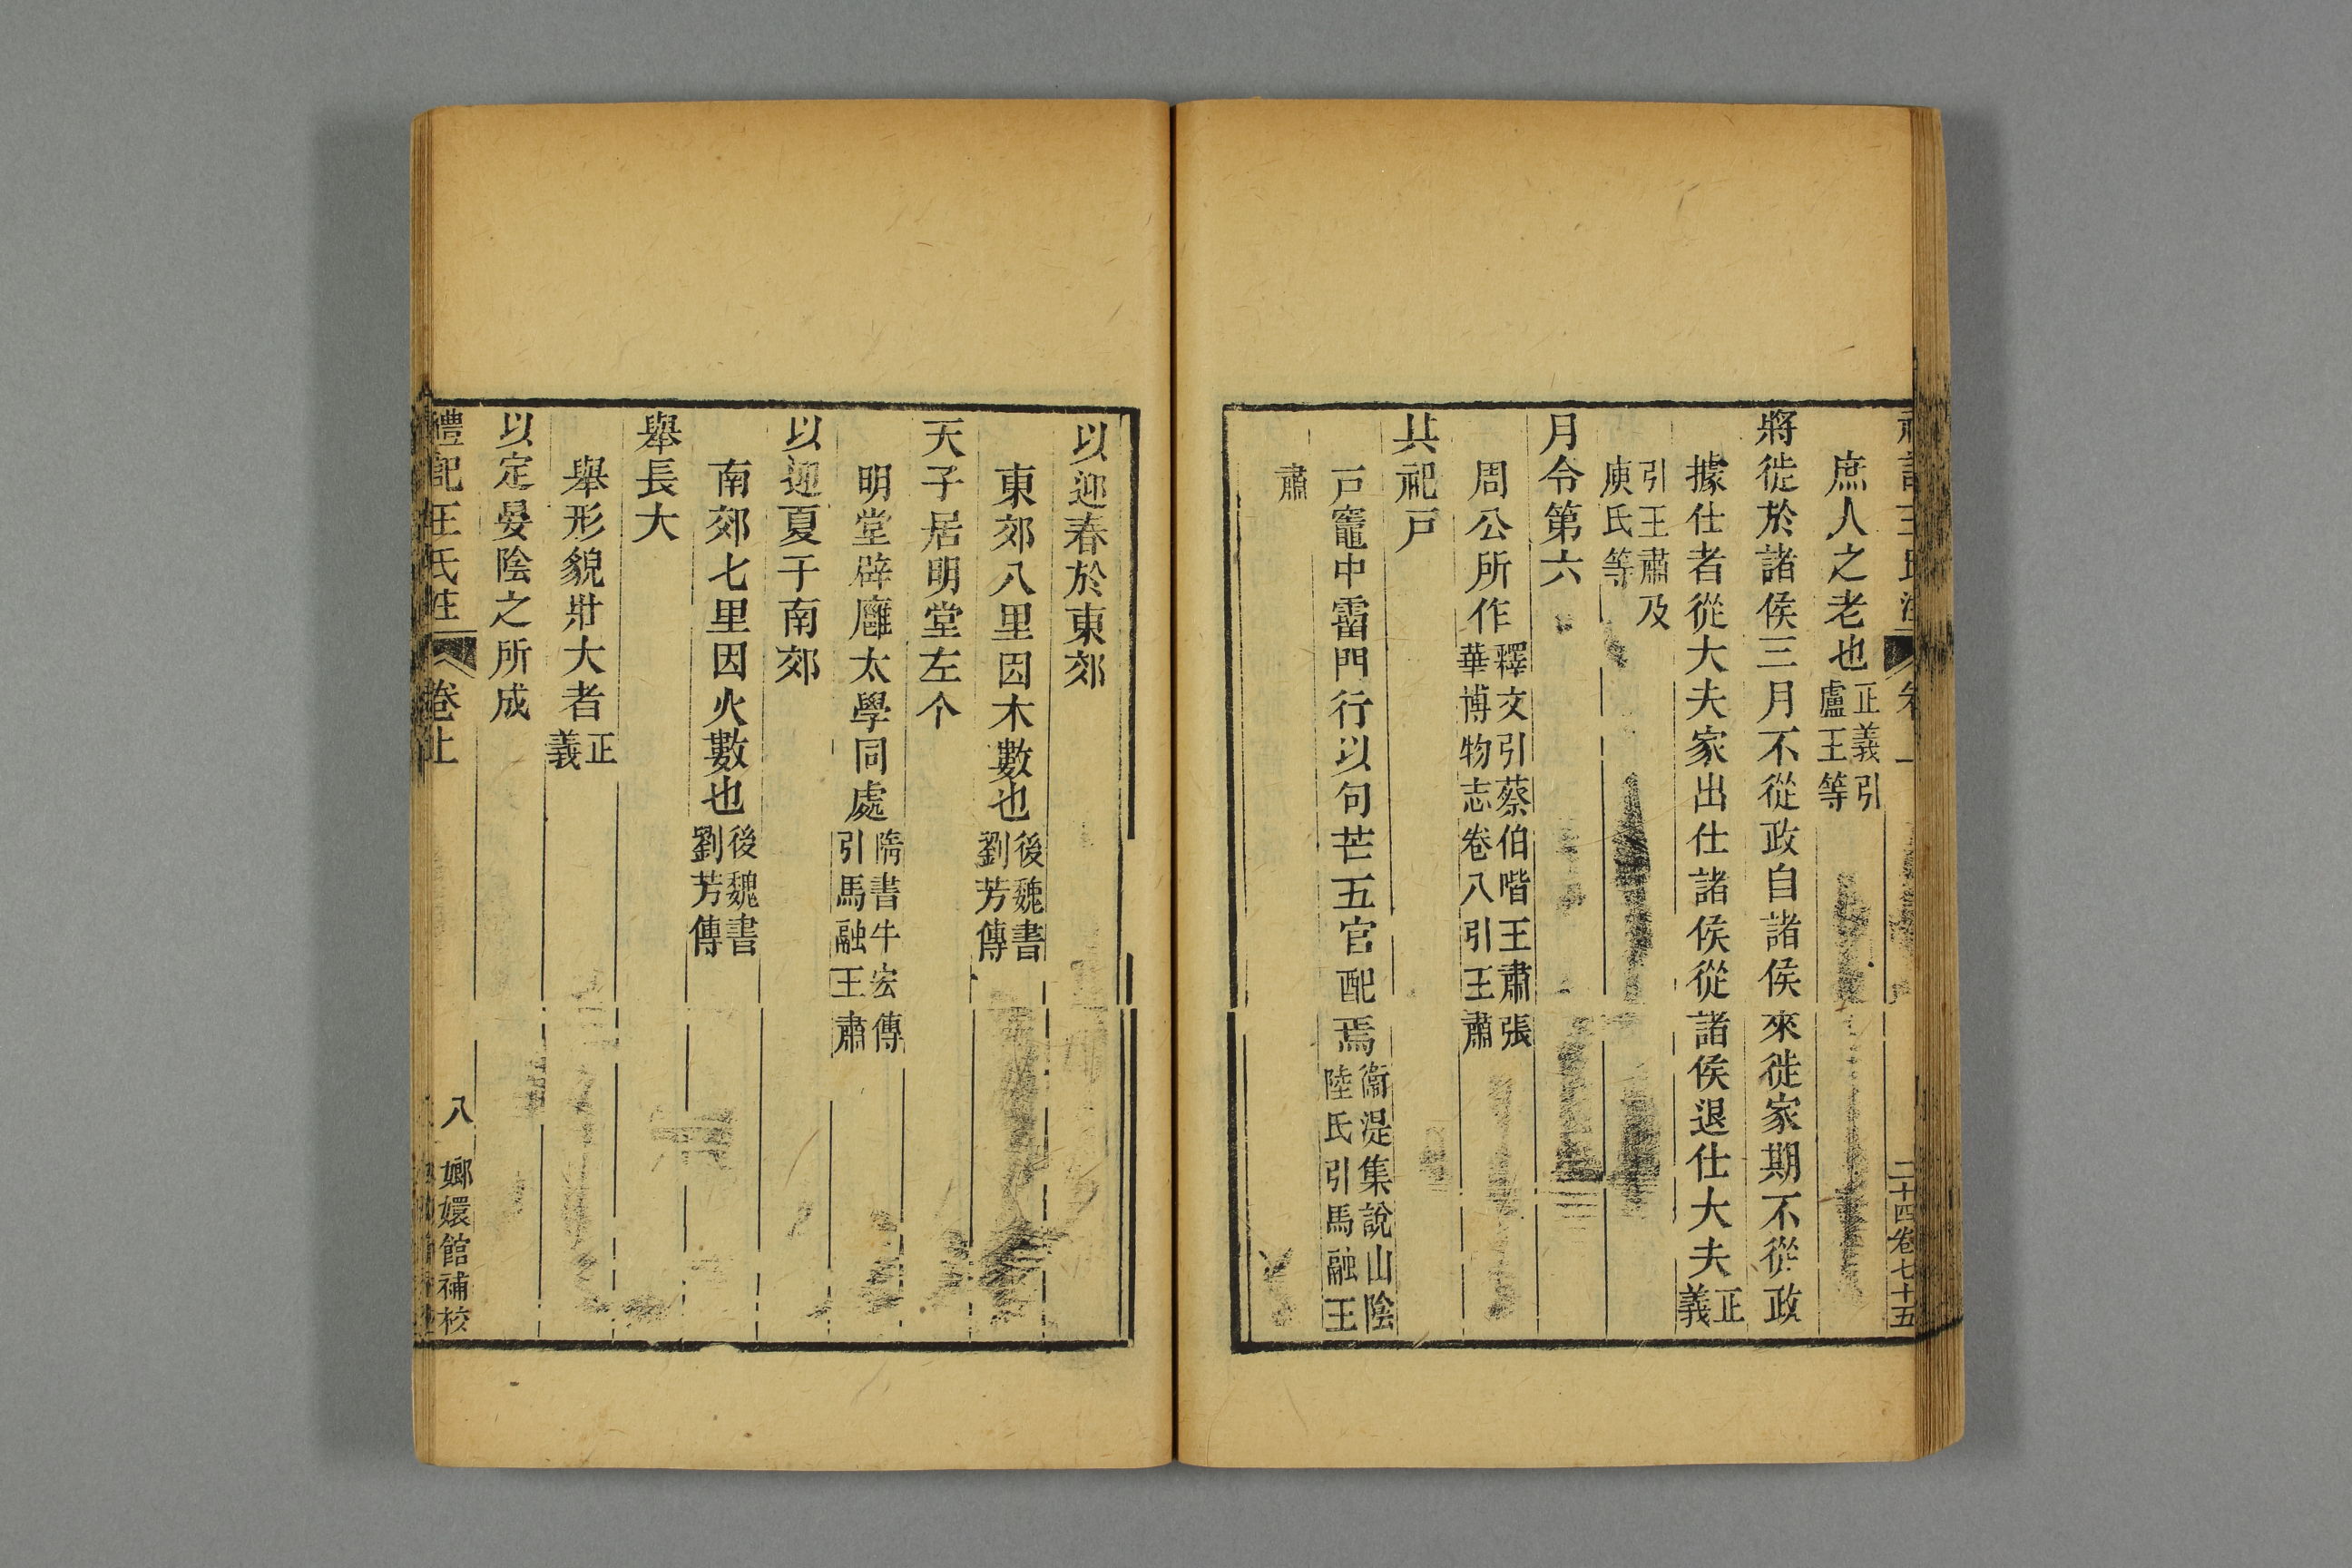 庶人之老也正義引盧王等
將徙於諸侯三月不從政自諸侯來徙家期不從政
據仕者從大夫家出仕諸侯從諸侯退仕大夫正義
引王肅及庾氏等
月令第六
周公所作釋文引蔡伯喈王肅張華博物志卷八引王肅
其祀戸
戸竈中霤門行以句芒五官配焉衞湜集說山陰陸氏引馬融王
肅
二十四卷七十五
以迎春於東郊
東郊八里因木數也後魏書劉芳傳
天子居明堂左个
明堂辟廱太學同處隋書牛宏傳引馬融王肅
以迎夏于南郊
南郊七里因火數也後魏書劉芳傳
舉長大
舉形貌壯大者正義
以定晏陰之所成
禮記王氏注 卷上 八 嫏嬛館補校